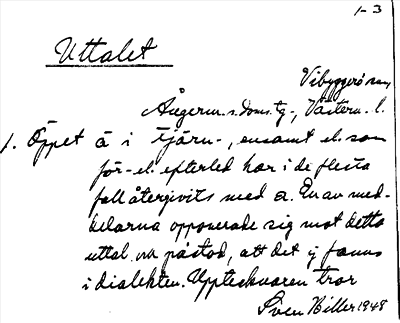 1-3
Uttalet
Vibyggerå sn,
Ångerm. s. Doms. tg., Västern. l.
1. Öppet ä i tjärn-, ensamt el. som
för- el. efterled har i de flesta
fall återgivits med a. En av med-
delarna opponerade sig mot detta
uttal och påstod, att det ej fanns
i dialekten. Upptecknaren tror
Sven Biller 1948